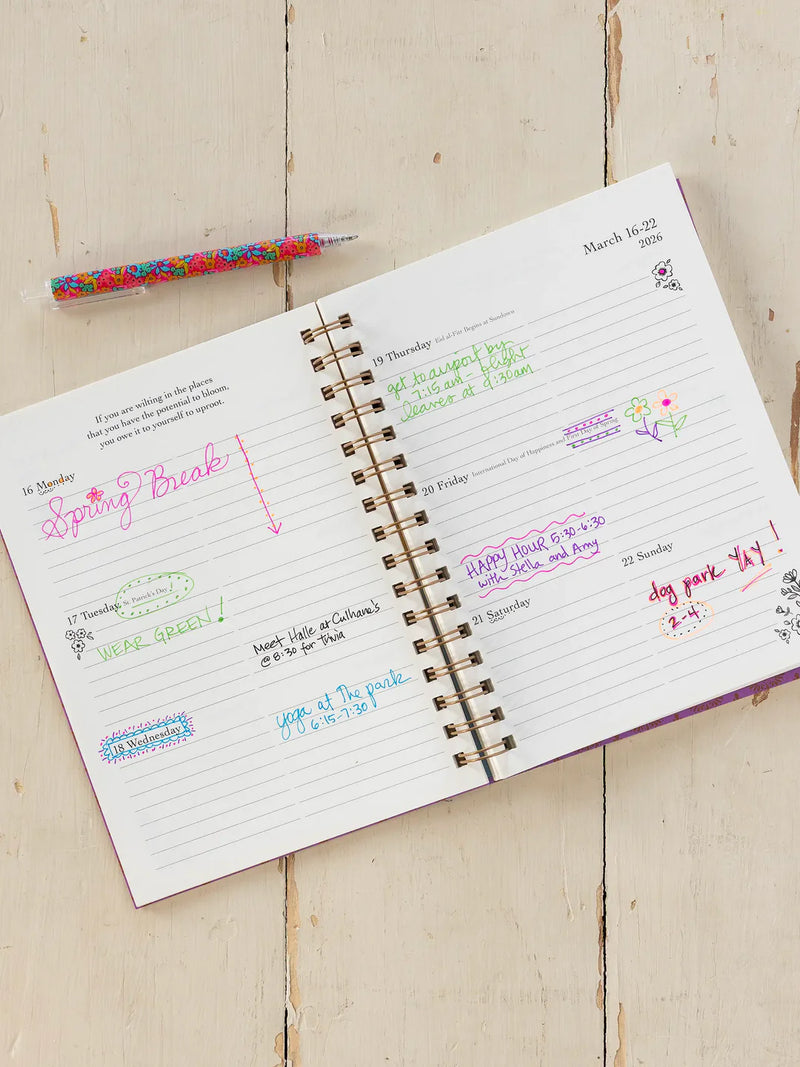 If you are wilting in the places
that you have the potential to bloom,
you owe it to yourself to uproot.
16 Monday
Spring Break
17 Tuesday St. Patrick's Day
WEAR GREEN!
Meet Halle at Culhane's
@ 8:30 for trivia
18 Wednesday
yoga at The park
6:15-7:30
March 16-22
2026
19 Thursday Eid al-Fitr Begins at Sundown
get to airport by
7:15 am - flight
leaves at 9:30am
20 Friday International Day of Happiness and First Day of Spring
HAPPY HOUR 5:30-6:30
with Stella and Amy
21 Saturday
22 Sunday
dog park YAY!
2-4